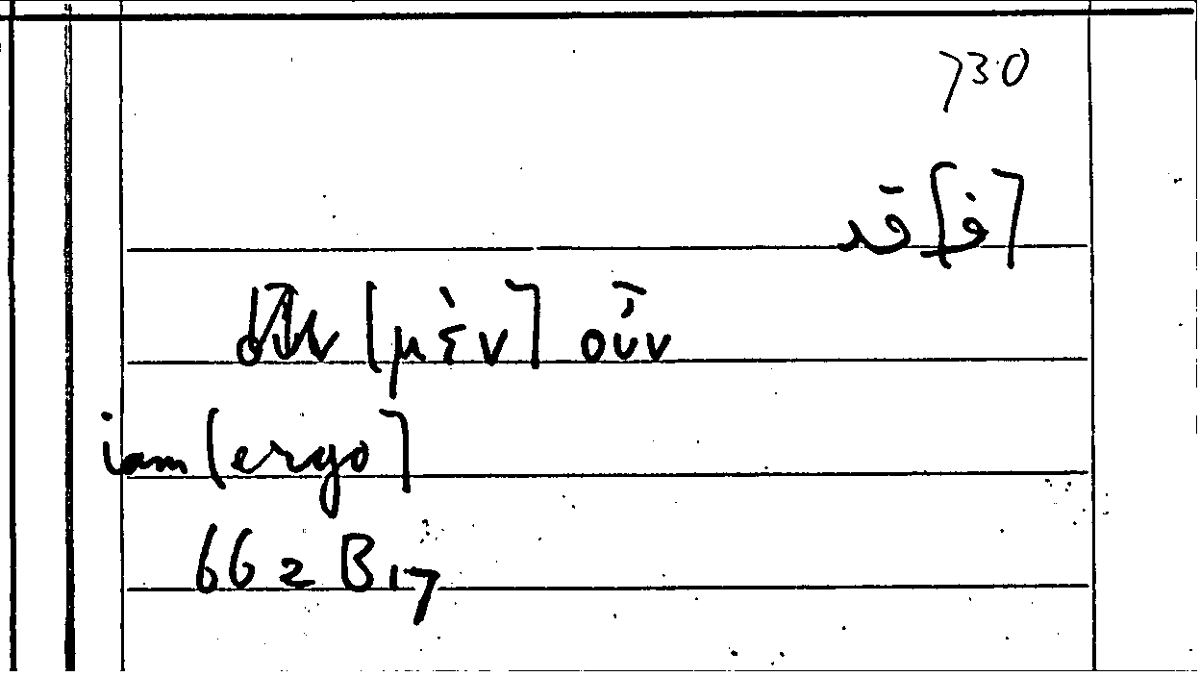 730
[ف]قد
[μὲν] οὖν
iam [ergo]
662 B 17